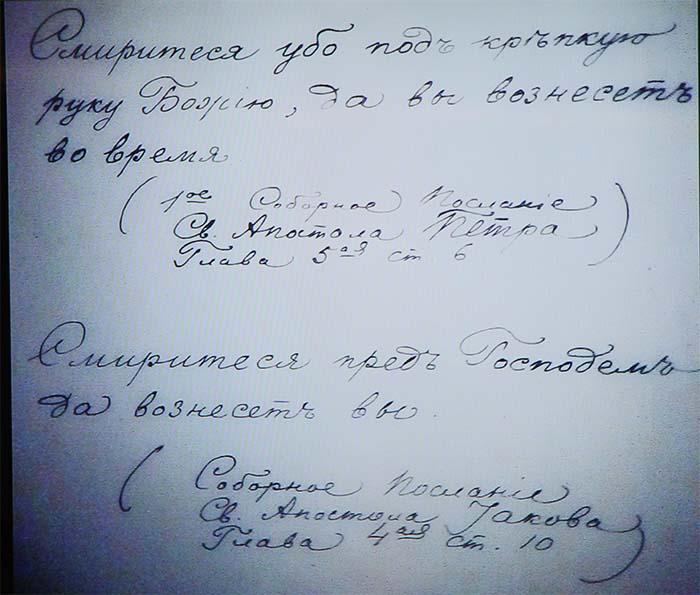 Смиритеся убо подъ крѣпкую
руку Божію, да вы вознесетъ
во время
(1ое Соборное Посланіе
Св. Апостола Петра
Глава 5ая ст 6)
Смиритеся предъ Господемъ
да вознесетъ вы.
(Соборное Посланіе
Св. Апостола Іакова
Глава 4ая ст. 10)